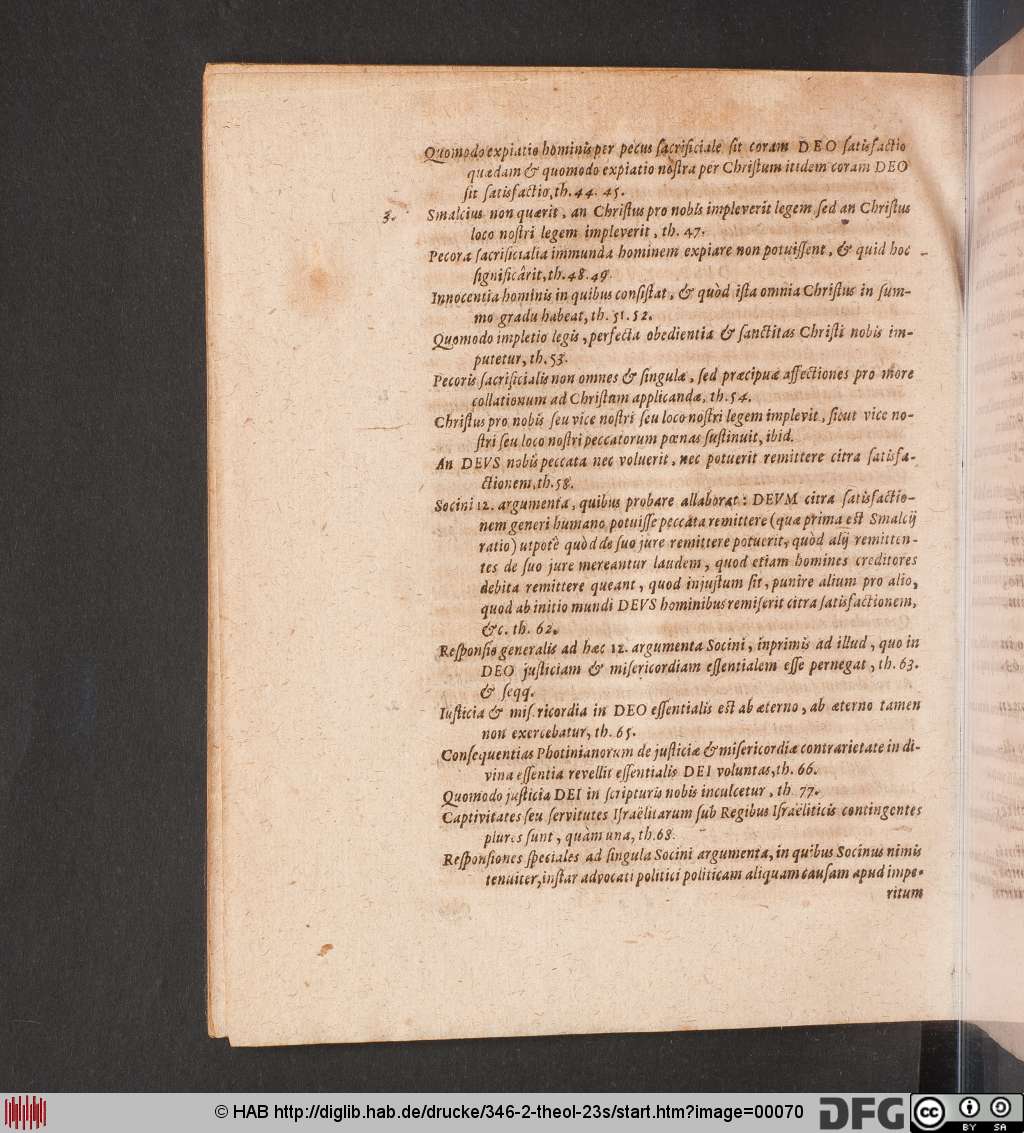 Quomodo expiatio hominis per pecus sacrificiale sit coram DEO satisfactio
quædam & quomodo expiatio nostra per Christum itidem coram DEO
sit satisfactio, th. 44. 45.
3. Smalcius non quærit, an Christus pro nobis impleverit legem, sed an Christus
loco nostri legem impleverit, th. 47.
Pecora sacrificialia immunda hominem expiare non potuissent, & quid hoc
significârit, th. 48. 49.
Innocentia hominis in quibus consistat, & quòd ista omnia Christus in sum-
mo gradu habeat, th. 51. 52.
Quomodo impletio legis, perfecta obedientia & sanctitas Christi nobis im-
putetur, th. 53.
Pecoris sacrificialis non omnes & singulæ, sed præcipuæ affectiones pro more
collationum ad Christum applicandæ, th. 54.
Christus pro nobis seu vice nostri seu loco nostri legem implevit, sicut vice no-
stri seu loco nostri peccatorum pœnas sustinuit, ibid.
An DEVS nobis peccata nec voluerit, nec potuerit remittere citra satisfa-
ctionem, th. 58.
Socini 12. argumenta, quibus probare allaborat: DEVM citra satisfactio-
nem generi humano potuisse peccata remittere (quæ prima est Smalcij
ratio) utpote quòd de suo jure remittere potuerit, quòd alij remitten-
tes de suo jure mereantur laudem, quod etiam homines creditores
debita remittere queant, quod injustum sit, punire alium pro alio,
quod ab initio mundi DEVS hominibus remiserit citra satisfactionem,
&c. th. 62.
Responsio generalis ad hæc 12. argumenta Socini, inprimis ad illud, quo in
DEO justiciam & misericordiam essentialem esse pernegat, th. 63.
& seqq.
Iusticia & misericordia in DEO essentialis est ab æterno, ab æterno tamen
non exercebatur, th. 65.
Consequentias Photinianorum de justiciæ & misericordiæ contrarietate in di-
vina essentia revellit essentialis DEI voluntas, th. 66.
Quomodo justicia DEI in scripturis nobis inculcetur, th. 77.
Captivitates seu servitutes Israëlitarum sub Regibus Israëliticis contingentes
plures sunt, quàm una, th. 68.
Responsiones speciales ad singula Socini argumenta, in quibus Socinus nimis
tenuiter, instar advocati politici politicam aliquam causam apud impe-
ritum
© HAB http://diglib.hab.de/drucke/346-2-theol-23s/start.htm?image=00070 DFG cc BY SA